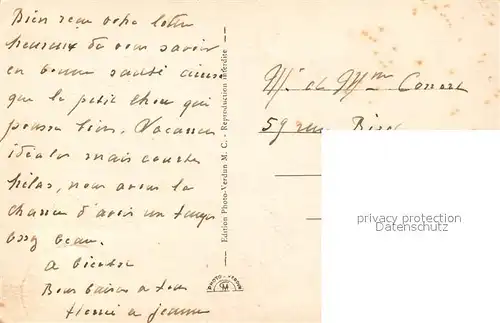 Bien reçu votre lettre
heureux de vous savoir
en bonne santé ainsi
que le petit chou qui
pousse bien. Vacances
idéales mais courtes
hélas, nous avons la
chance d'avoir un temps
assez beau.
a bientot
Bons baisers a tous
Henri a Jeanne
Edition Photo-Verdun M. C. - Reproduction interdite -
PHOTO - VERDUN
Mr et Mme
59 rue
privacy protection
VERIFIED